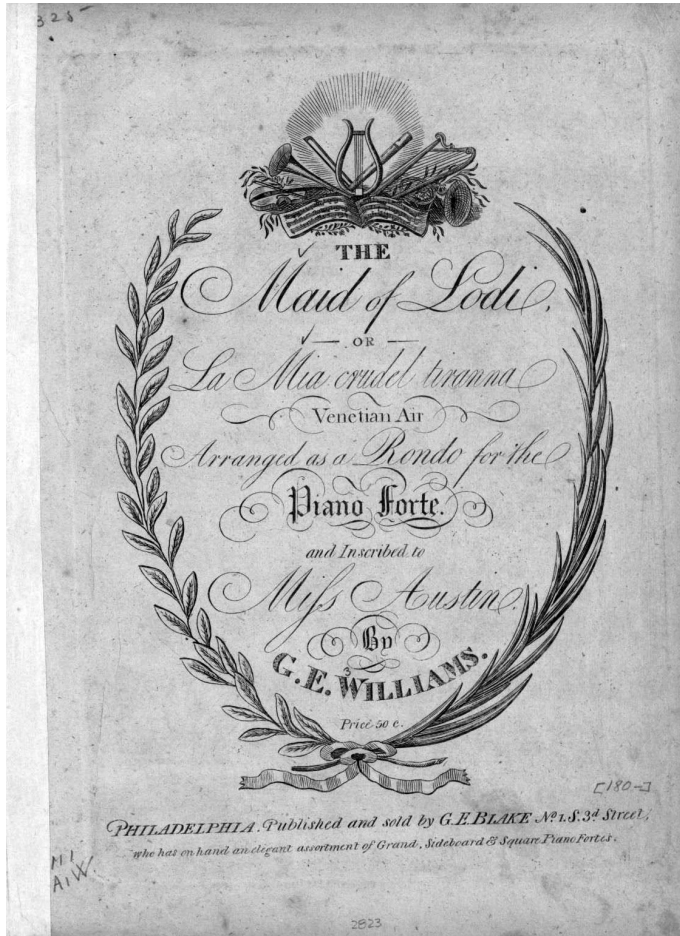 325
THE
Maid of Lodi,
OR
La Mia crudel tiranna
Venetian Air
Arranged as a Rondo for the
Piano Forte.
and Inscribed to
Miſs Austin.
By
G. E. WILLIAMS.
Price 50 c.
[180-]
PHILADELPHIA. Published and sold by G. E. BLAKE No. 1. S. 3d Street,
who has on hand an elegant assortment of Grand, Sideboard & Square Piano Fortes.
M1
A1W
2823